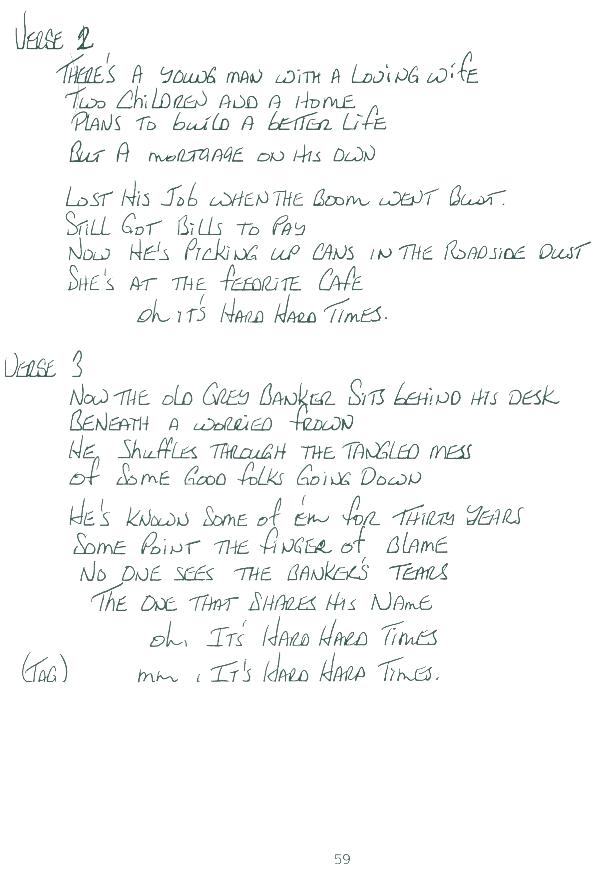 Verse 2
There's a young man with a loving wife
Two children and a home
Plans to build a better life
But a mortgage on his own
Lost his job when the boom went bust.
Still got bills to pay
Now he's picking up cans in the roadside dust
She's at the feedrite cafe
oh it's hard hard times.
Verse 3
Now the old grey banker sits behind his desk
Beneath a worried frown
He, shuffles through the tangled mess
of some good folks going down
He's known some of em for thirty years
Some point the finger of blame
No one sees the banker's tears
The one that shares his name
oh, it's hard hard times
(Tag) mm, it's hard hard times.
59